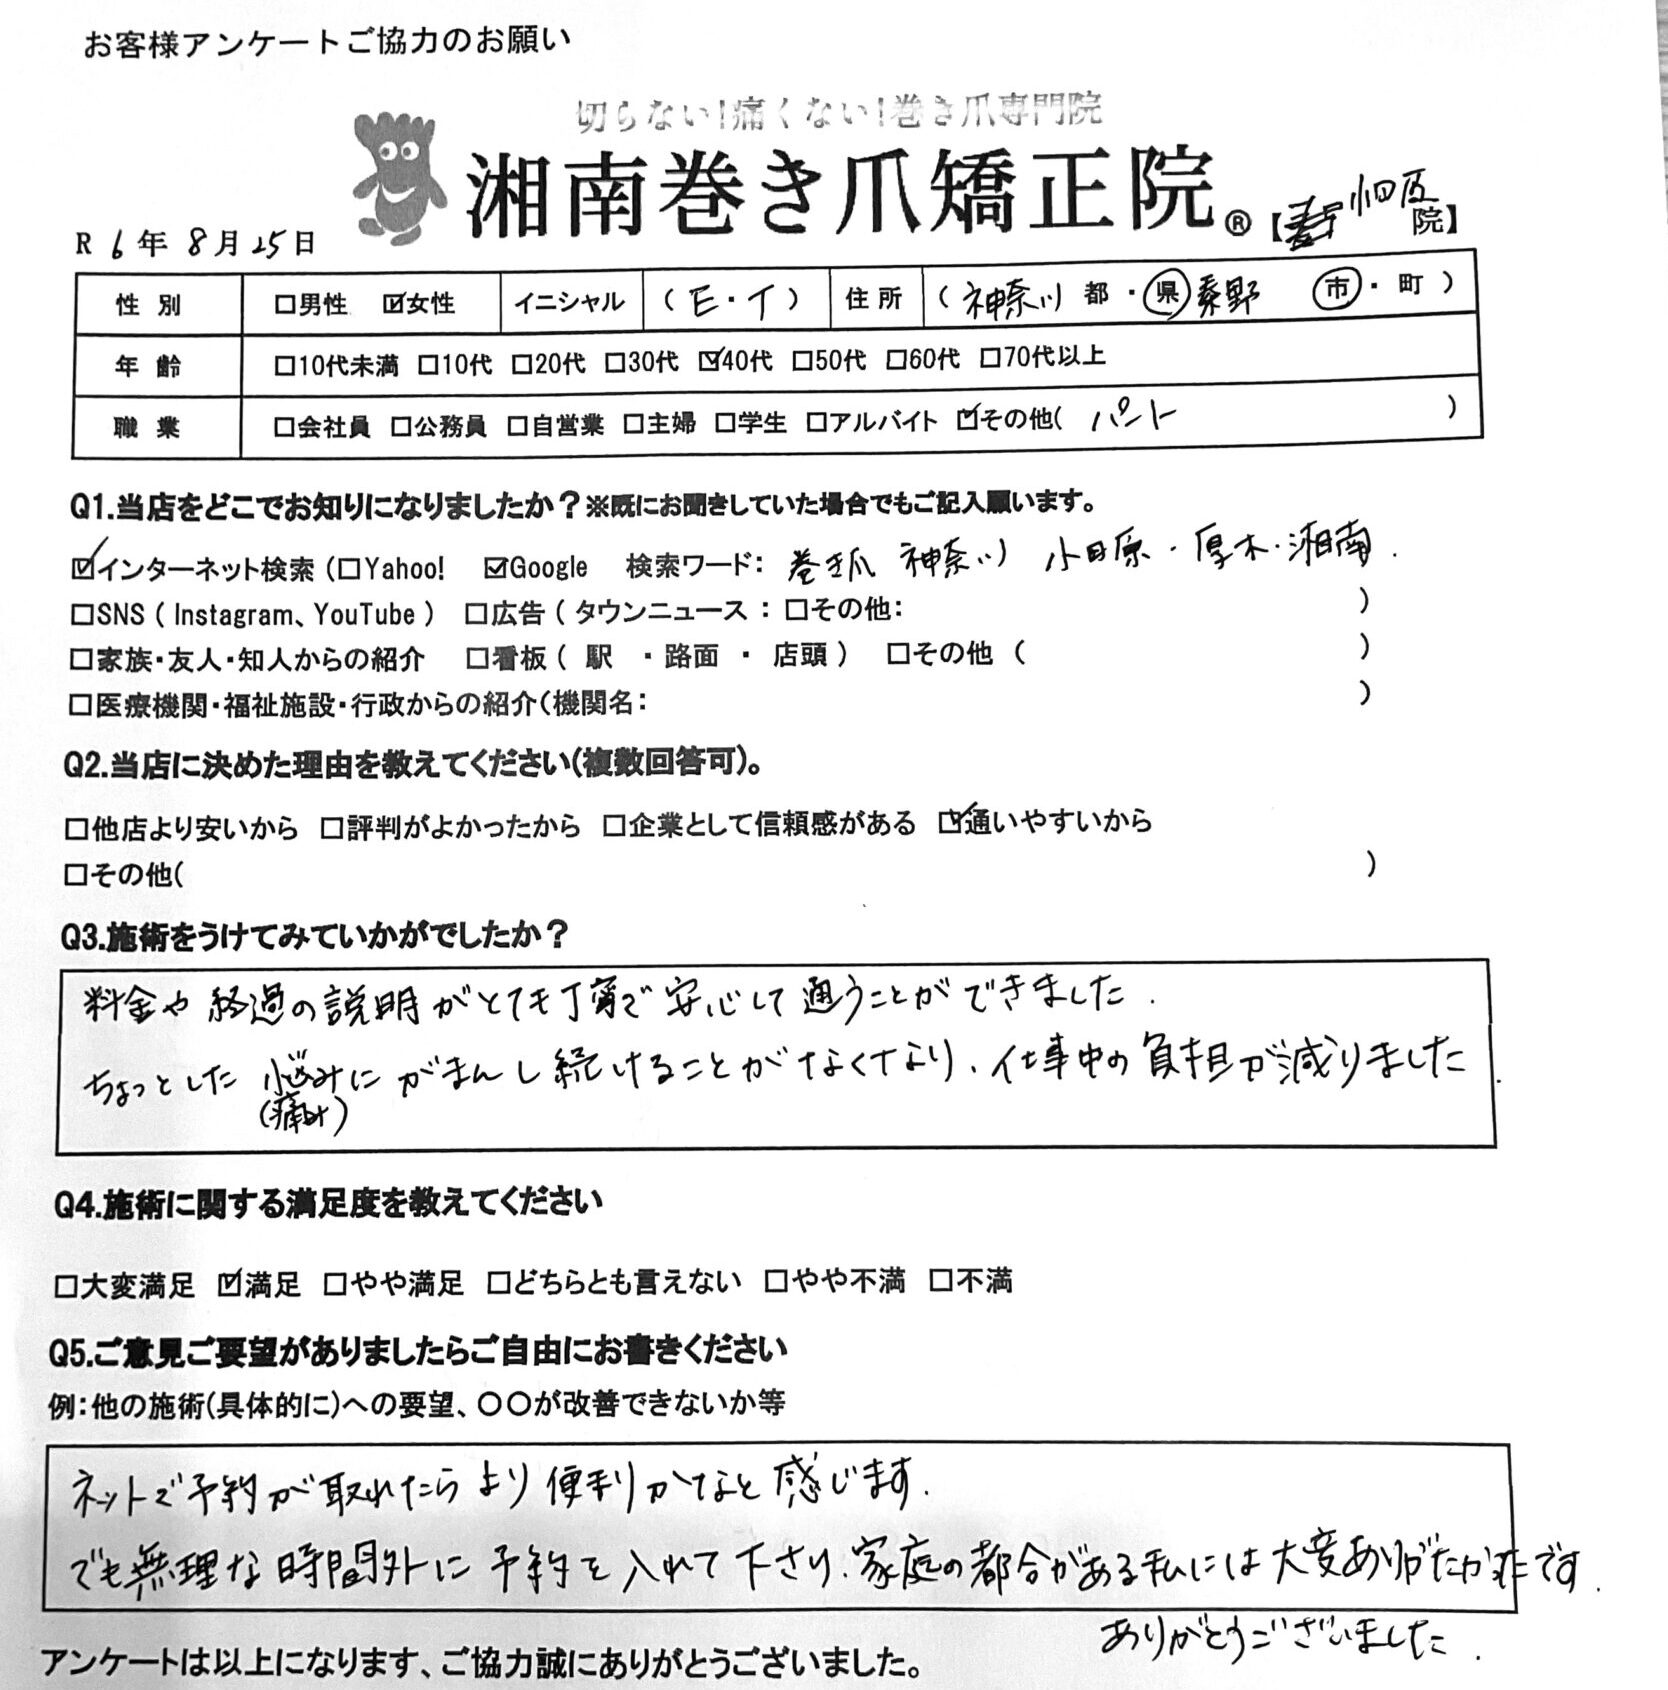 お客様アンケートご協力のお願い
切らない!痛くない!巻き爪専門院
湘南巻き爪矯正院®【小田原院】
R 6年 8月 25日
性別 □男性 ☑女性 イニシャル (E・I) 住所 (神奈川 都・県 秦野 市・町)
年齢 □10代未満 □10代 □20代 □30代 ☑40代 □50代 □60代 □70代以上
職業 □会社員 □公務員 □自営業 □主婦 □学生 □アルバイト ☑その他( パート )
Q1.当店をどこでお知りになりましたか?※既にお聞きしていた場合でもご記入願います。
☑インターネット検索(□Yahoo! ☑Google 検索ワード: 巻き爪 神奈川 小田原・厚木・湘南.
□SNS(Instagram、YouTube) □広告(タウンニュース:□その他: )
□家族・友人・知人からの紹介 □看板(駅・路面・店頭) □その他( )
□医療機関・福祉施設・行政からの紹介(機関名: )
Q2.当店に決めた理由を教えてください(複数回答可)。
□他店より安いから □評判がよかったから □企業として信頼感がある ☑通いやすいから
□その他( )
Q3.施術をうけてみていかがでしたか?
料金や経過の説明がとても丁寧で安心して通うことができました.
ちょっとした悩みにがまんし続けることがなくなり、仕事中の負担が減りました.
(痛み)
Q4.施術に関する満足度を教えてください
□大変満足 ☑満足 □やや満足 □どちらとも言えない □やや不満 □不満
Q5.ご意見ご要望がありましたらご自由にお書きください
例:他の施術(具体的に)への要望、〇〇が改善できないか等
ネットで予約が取れたらより便利かなと感じます.
でも無理な時間外に予約を入れて下さり、家庭の都合がある私には大変ありがたかったです.
ありがとうございました.
アンケートは以上になります、ご協力誠にありがとうございました。